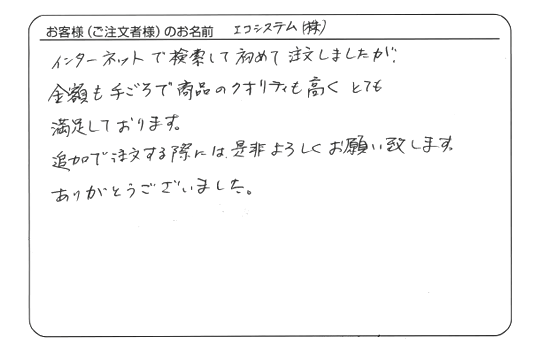 お客様(ご注文者様)のお名前 エコシステム(株)
インターネットで検索して初めて注文しましたが、
金額も手ごろで商品のクオリティも高くとても
満足しております。
追加で注文する際には是非よろしくお願い致します。
ありがとうございました。